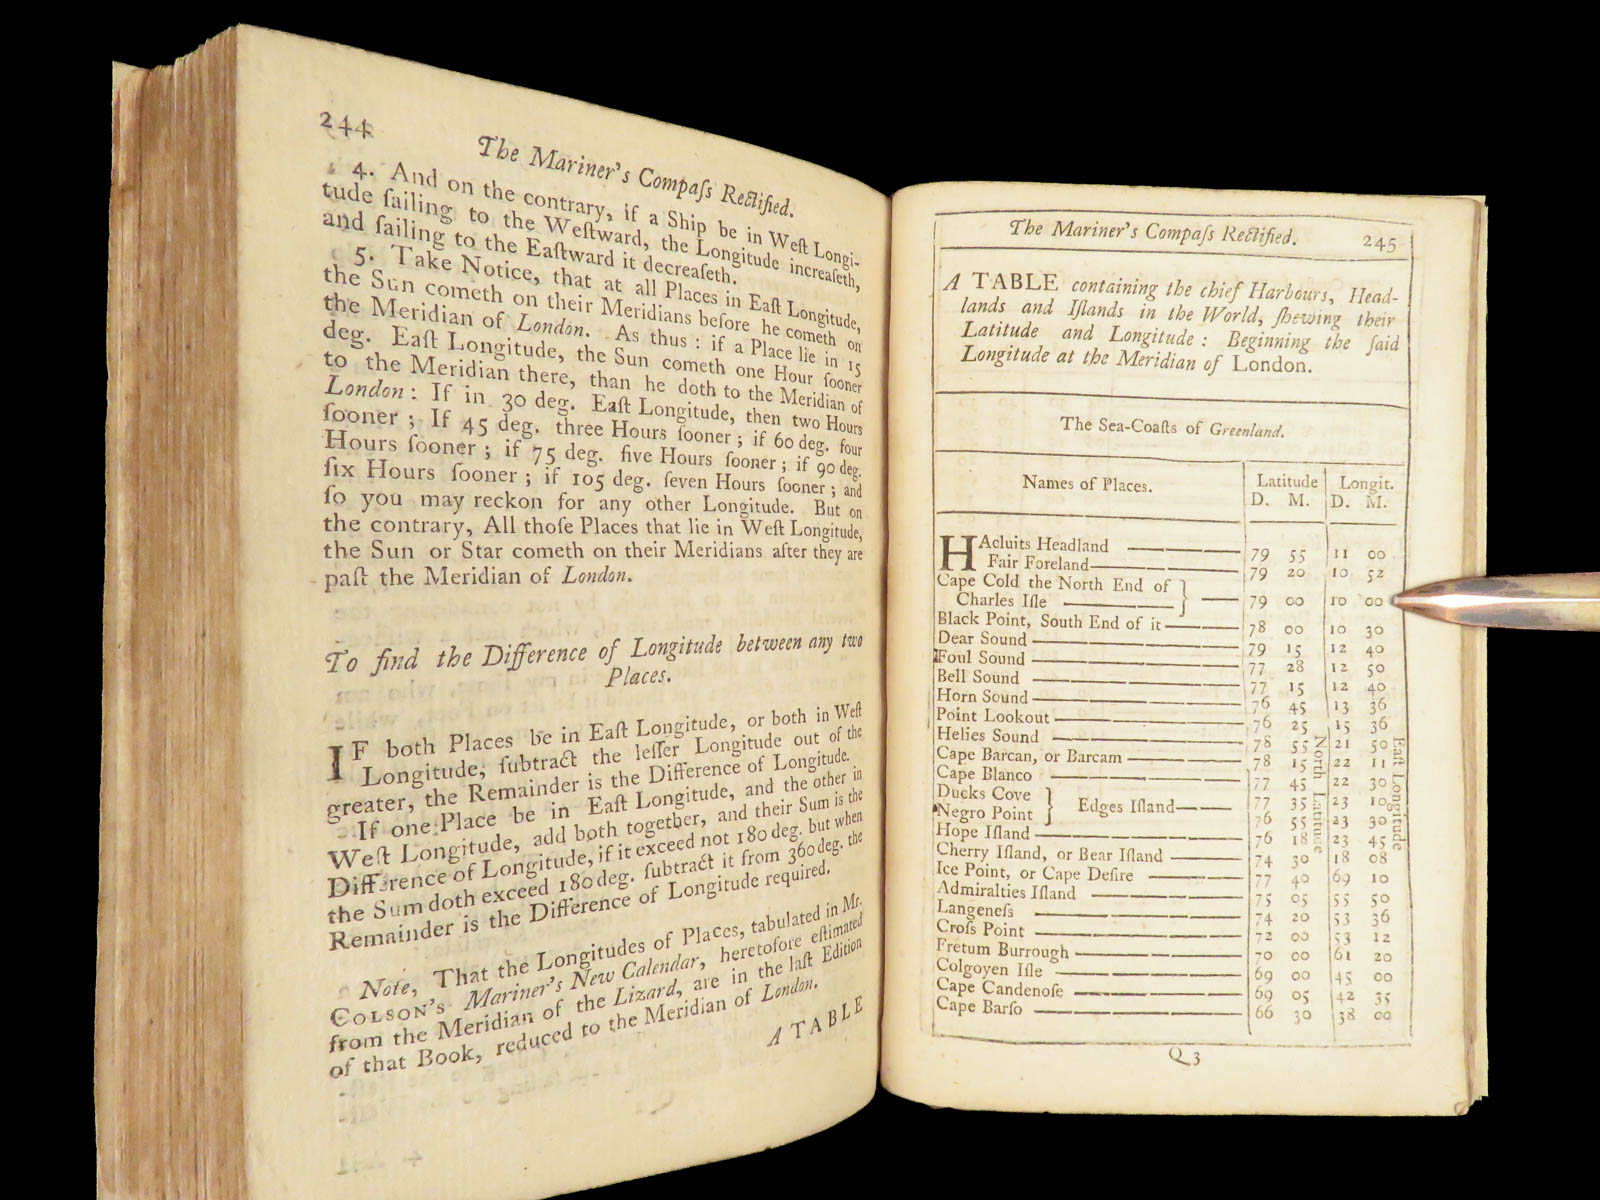 244
The Mariner's Compaſs Rectified.
4. And on the contrary, if a Ship be in Weſt Longi-
tude ſailing to the Weſtward, the Longitude increaſeth,
and ſailing to the Eaſtward it decreaſeth.
5. Take Notice, that at all Places in Eaſt Longitude,
the Sun cometh on their Meridians before he cometh on
the Meridian of London. As thus : if a Place lie in 15
deg. Eaſt Longitude, the Sun cometh one Hour ſooner
to the Meridian there, than he doth to the Meridian of
London : If in 30 deg. Eaſt Longitude, then two Hours
ſooner ; If 45 deg. three Hours ſooner ; if 60 deg. four
Hours ſooner ; if 75 deg. five Hours ſooner ; if 90 deg.
ſix Hours ſooner ; if 105 deg. ſeven Hours ſooner ; and
ſo you may reckon for any other Longitude. But on
the contrary, All thoſe Places that lie in Weſt Longitude,
the Sun or Star cometh on their Meridians after they are
paſt the Meridian of London.
To find the Difference of Longitude between any two
Places.
IF both Places be in Eaſt Longitude, or both in Weſt
Longitude, ſubtract the leſſer Longitude out of the
greater, the Remainder is the Difference of Longitude.
If one Place be in Eaſt Longitude, and the other in
Weſt Longitude, add both together, and their Sum is the
Difference of Longitude, if it exceed not 180 deg. but when
the Sum doth exceed 180 deg. ſubtract it from 360 deg. the
Remainder is the Difference of Longitude required.
Note, That the Longitudes of Places, tabulated in Mr.
COLSON'S Mariner's New Calendar, heretofore eſtimated
from the Meridian of the Lizard, are in the laſt Edition
of that Book, reduced to the Meridian of London.
A TABLE
The Mariner's Compaſs Rectified. 245
A TABLE containing the chief Harbours, Head-
lands and Iſlands in the World, ſhewing their
Latitude and Longitude : Beginning the ſaid
Longitude at the Meridian of London.
The Sea-Coaſts of Greenland.
Names of Places. Latitude Longit.
D. M. D. M.
HAcluits Headland 79 55 11 00
Fair Foreland 79 20 10 52
Cape Cold the North End of
Charles Iſle 79 00 10 00
Black Point, South End of it 78 00 10 30
Dear Sound 79 15 12 40
Foul Sound 77 28 12 50
Bell Sound 77 15 12 40
Horn Sound 76 45 13 36
Point Lookout 76 25 15 36
Helies Sound 78 55 21 50
Cape Barcan, or Barcam 78 15 22 11
Cape Blanco 77 45 22 30
Ducks Cove } Edges Iſland 77 35 23 10
Negro Point 76 55 23 30
Hope Iſland 76 18 23 45
Cherry Iſland, or Bear Iſland 74 30 18 08
Ice Point, or Cape Deſire 77 40 69 10
Admiralties Iſland 75 05 55 50
Langeneſs 74 20 53 36
Croſs Point 72 00 53 12
Fretum Burrough 70 00 61 20
Colgoyen Iſle 69 00 45 00
Cape Candenoſe 69 05 42 35
Cape Barſo 66 30 38 00
North Latitude
East Longitude
Q 3